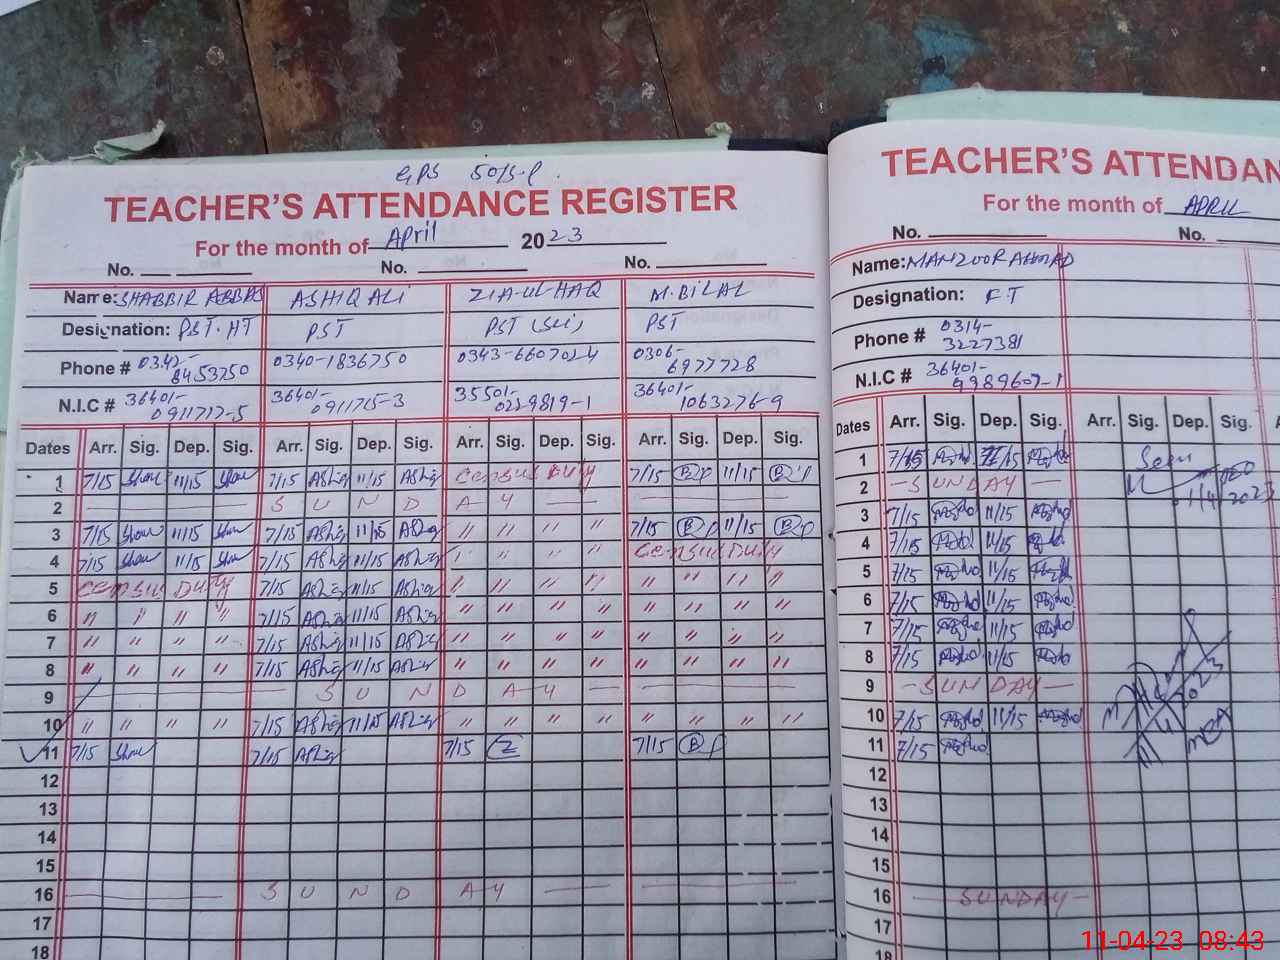 GPS 50/5-L
TEACHER'S ATTENDANCE REGISTER
For the month of April 2023
No. No. No.
Name: SHABBIR ABBAS ASHIQ ALI ZIA-UL-HAQ M.BILAL
Designation: PST.HT PST PST PST
Phone # 0342-8453750 0340-1836750 0343-6607024 0306-6977728
N.I.C # 36401-0911717-5 36401-0911715-3 35501-0229819-1 36401-1063276-9
Dates Arr. Sig. Dep. Sig. Arr. Sig. Dep. Sig. Arr. Sig. Dep. Sig. Arr. Sig. Dep. Sig.
1 7/15 11/15 7/15 Ashiq 11/15 Ashiq Census Duty 7/15 B 11/15 B
2 SUNDAY
3 7/15 11/15 7/15 Ashiq 11/15 Ashiq " " " " 7/15 B 11/15 B
4 7/15 11/15 7/15 Ashiq 11/15 Ashiq " " " Census Duty
5 Census Duty 7/15 Ashiq 11/15 Ashiq " " " " " " " "
6 " " " " 7/15 Ashiq 11/15 Ashiq " " " " " " " "
7 " " " " 7/15 Ashiq 11/15 Ashiq " " " " " " " "
8 " " " " 7/15 Ashiq 11/15 Ashiq " " " " " " " "
9 SUNDAY
10 " " " " 7/15 Ashiq 11/15 Ashiq " " " " " " " "
11 7/15 7/15 Ashiq 7/15 Z 7/15 B
12
13
14
15
16 SUNDAY
17
18
TEACHER'S ATTENDAN
For the month of APRIL
No. No.
Name: MANZOOR AHMAD
Designation: CT
Phone # 0314-3227381
N.I.C # 36401-9989607-1
Dates Arr. Sig. Dep. Sig. Arr. Sig. Dep. Sig. A
1 7/15 11/15 Seen
2 SUNDAY 1/4/2023
3 7/15 11/15
4 7/15 11/15
5 7/15 11/15
6 7/15 11/15
7 7/15 11/15
8 7/15 11/15
9 SUNDAY
10 7/15 11/15
11 7/15
11/4/2023
MEA
12
13
14
15
16 SUNDAY
17
18
11-04-23 08:43